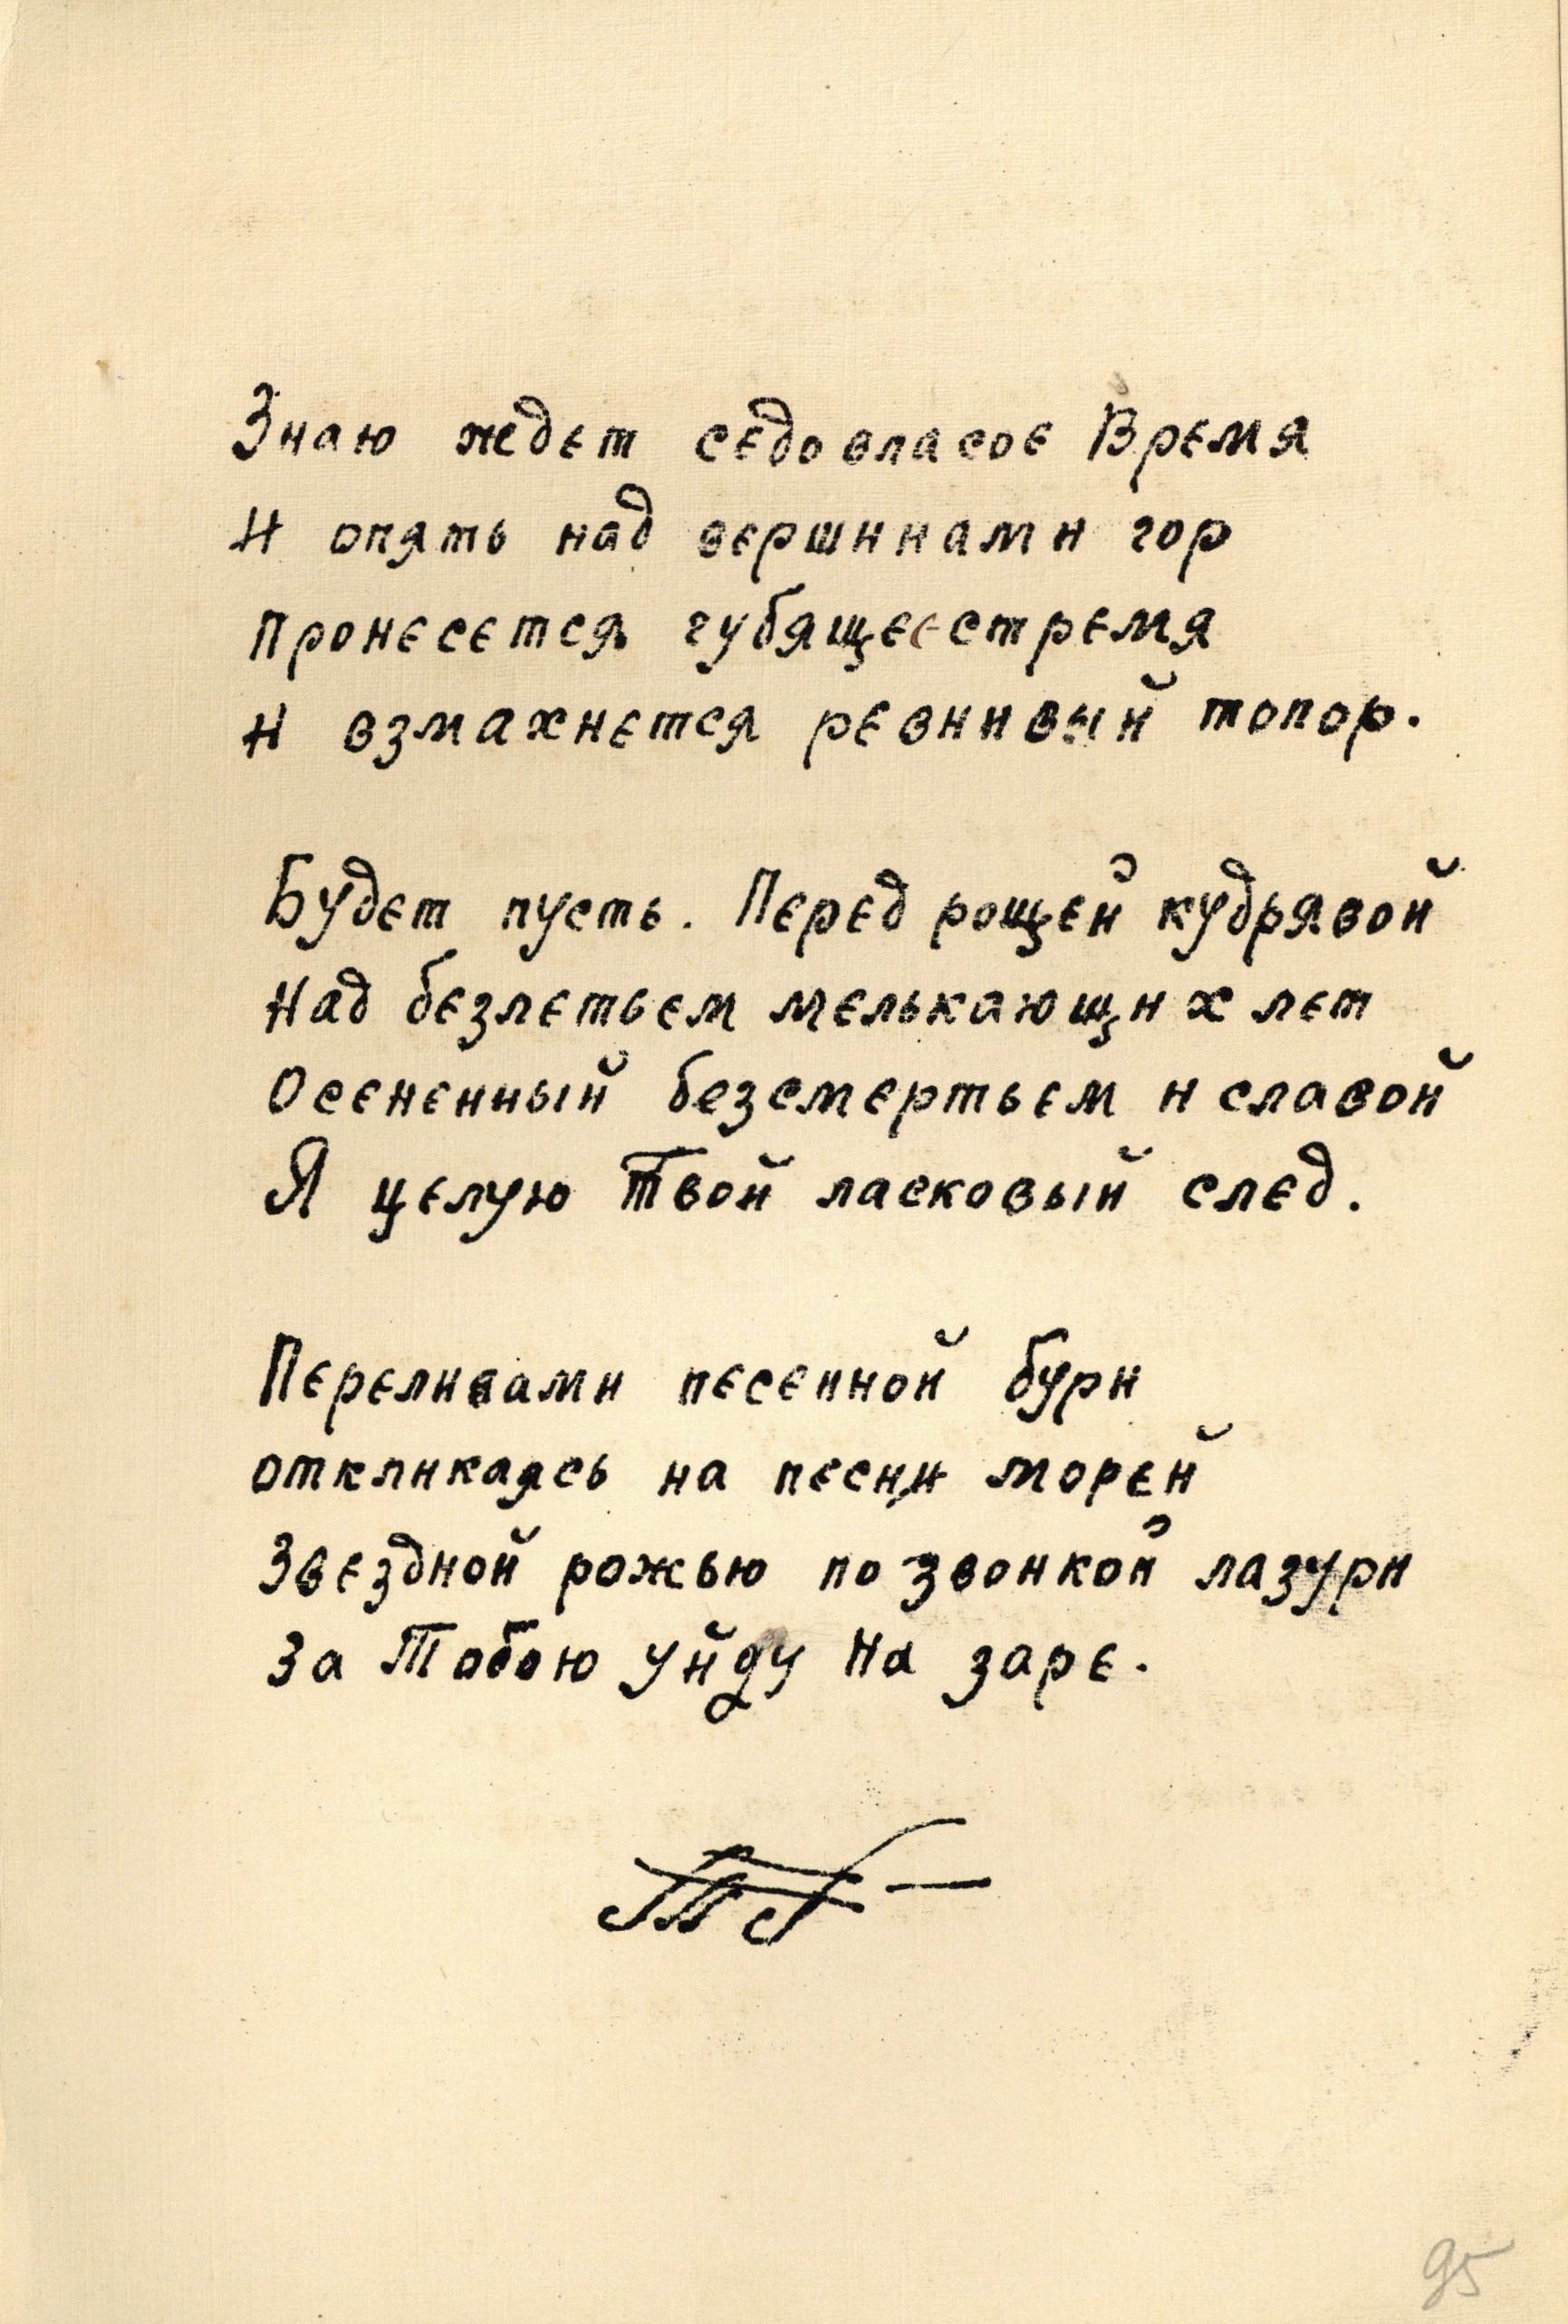 Знаю ждет седовласое Время
И опять над вершинами гор
Пронесется губящее стремя
И взмахнется ревнивый топор.
Будет пусть. Перед рощей кудрявой
Над безлетьем мелькающих лет
Осененный безсмертьем и славой
Я целую Твой ласковый след.
Переливами песенной бури
откликаясь на песни морей
Звездной рожью по звонкой лазури
За Тобою уйду на заре.
95